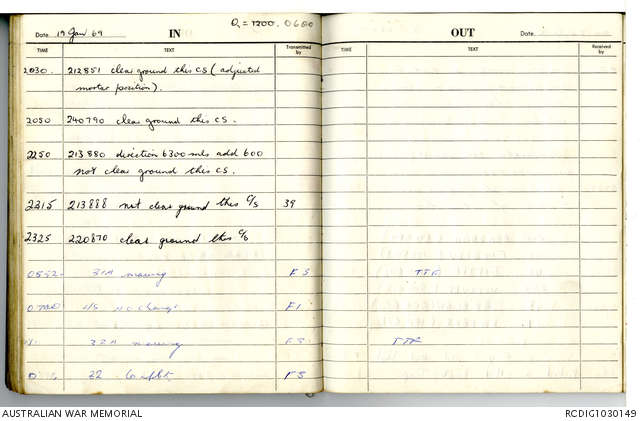 Q = 1200. 0600
Date 19 Jan 69 IN
TIME TEXT Transmitted by
2030. 212851 clear ground this CS (adjusted
mortar position).
2050 240790 clear ground this CS.
2250 213880 direction 6300 mls add 600
not clear ground this CS.
2315 213888 not clear ground this C/S 39
2325 220870 clear ground this C/S
31A moving FS
No change
32A moving
22 FS
OUT
Date
TIME TEXT Received by
AUSTRALIAN WAR MEMORIAL
RCDIG1030149